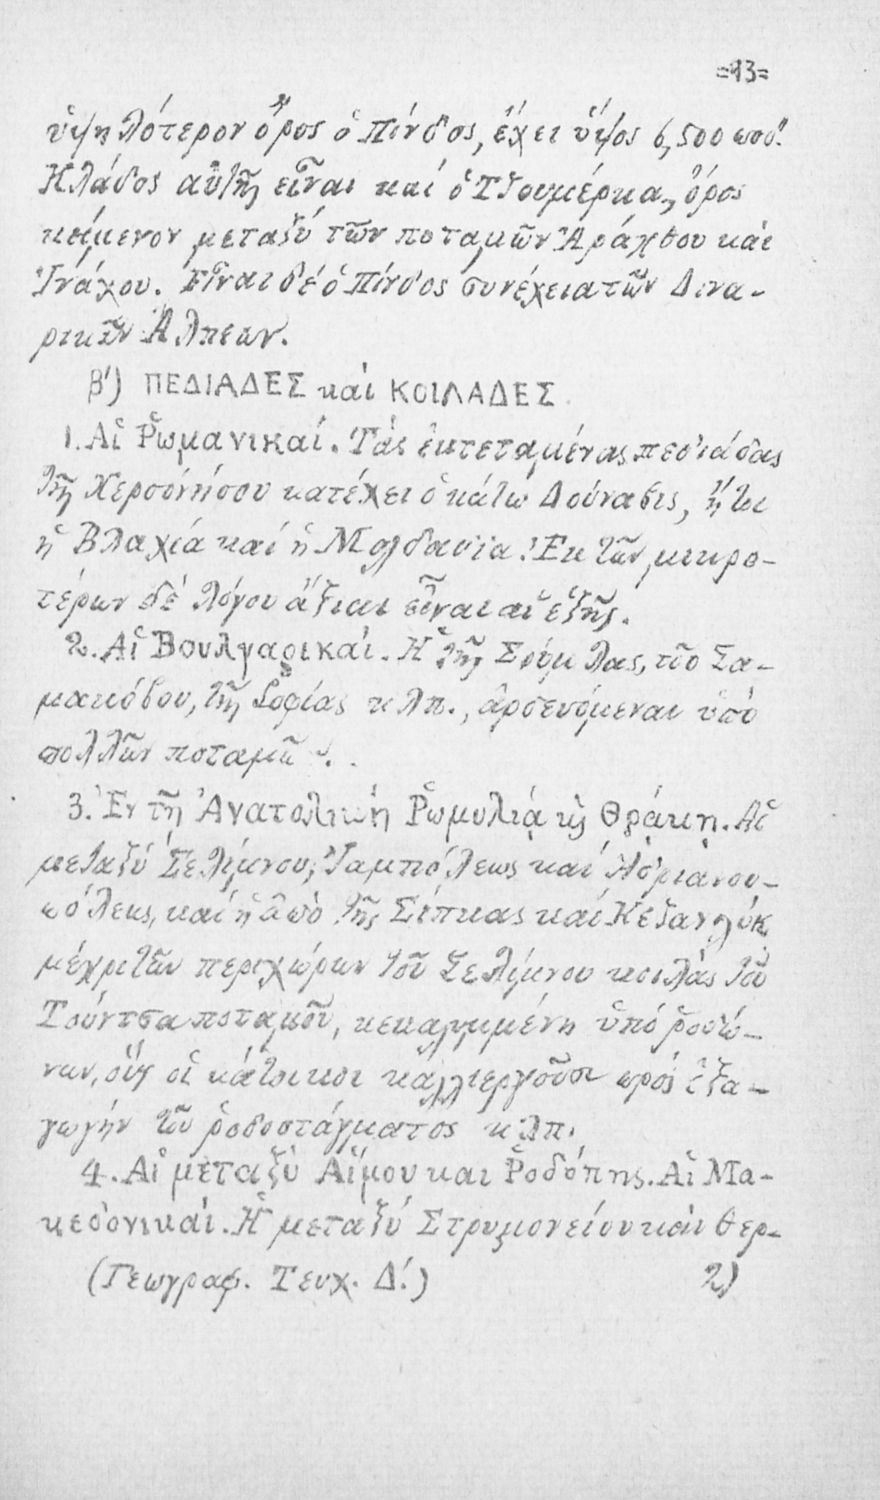 =13=
ὑψηλότερον ὄρος ὁ Πίνδος, ἔχει ὕψος 6,500 ποδ.
Κλάδος αὐτῆς εἶναι καί ὁ Τζουμέρκα, ὄρος
κείμενον μεταξύ τῶν ποταμῶν Ἀράχθου καί
Ἰνάχου. Εἶναι δέ ὁ Πίνδος συνέχεια τῶν Δινα-
ρικῶν Ἄλπεων.
β΄) ΠΕΔΙΑΔΕΣ καί ΚΟΙΛΑΔΕΣ
1. Αἱ Ῥωμανικαί. Τάς ἐκτεταμένας πεδιάδας
τῆς Χερσονήσου κατέχει ὁ κάτω Δούναβις, ἤτοι
ἡ Βλαχία καί ἡ Μολδαυία. Ἐκ τῶν μικρο-
τέρων δέ λόγου ἄξιαι εἶναι αἱ ἑξῆς.
2. Αἱ Βουλγαρικαί. Ἡ τῆς Σούμλας, τοῦ Σα-
μακόβου, τῆς Σοφίας κλπ., ἀρδευόμεναι ὑπό
πολλῶν ποταμῶν.
3. Ἐν τῇ Ἀνατολικῇ Ῥωμυλίᾳ κ Θρᾴκῃ. Αἱ
μεταξύ Σελίμνου, Ἰαμπόλεως καί Ἀδριανου-
πόλεως, καί ἡ ἀπό τῆς Σίπκας καί Κεζανλύκ
μέχρι τῶν περιχώρων τοῦ Σελίμνου κοιλάς τοῦ
Τούντσα ποταμοῦ, κεκαλυμμένη ὑπό ῥοδώ-
νων, οὓς οἱ κάτοικοι καλλιεργοῦσι πρός ἐξα-
γωγήν τοῦ ῥοδοστάγματος κλπ.
4. Αἱ μεταξύ Αἵμου καί Ῥοδόπης. Αἱ Μα-
κεδονικαί. Ἡ μεταξύ Στρυμονείου καί Θερ-
(Γεωγραφ. Τευχ. Δ΄.) 2)